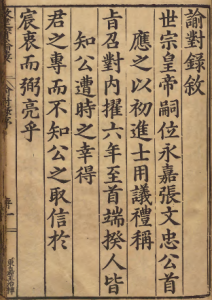 諭對錄敘
世宗皇帝嗣位永嘉張文忠公首
應之以初進士用議禮稱
旨召對內擢六年至首端揆人皆
知公遭時之幸得
君之專而不知公之取信於
宸衷而弼亮乎